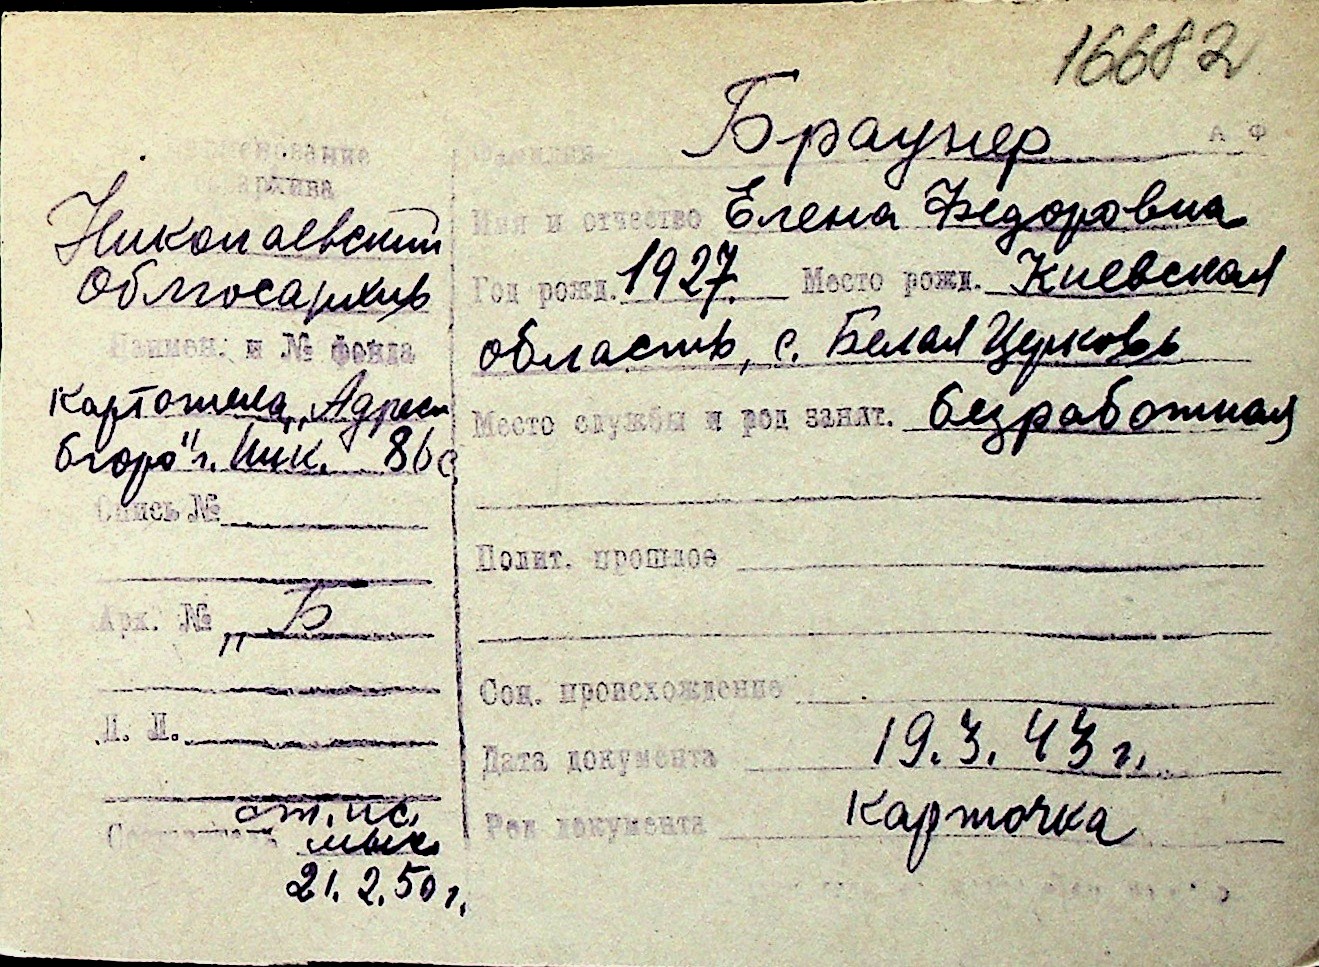 16682
А Ф
Фамилия Браунер
Имя и отчество Елена Федоровна
Год рожд. 1927. Место рожд. Киевская
область, с. Белая Церковь
Место службы и род занят. безработная
Полит. прошлое
Соц. происхождение
Дата документа 19.3.43 г.
Род документа Карточка
архива
Николаевский
Облгосархив
Наимен. и № фонда
Картотека „Адресн
бюро" г. Ник. 86 с
Опись №
Арх. № „Б
Л. Л.
ст. ис.
21.2.50 г.